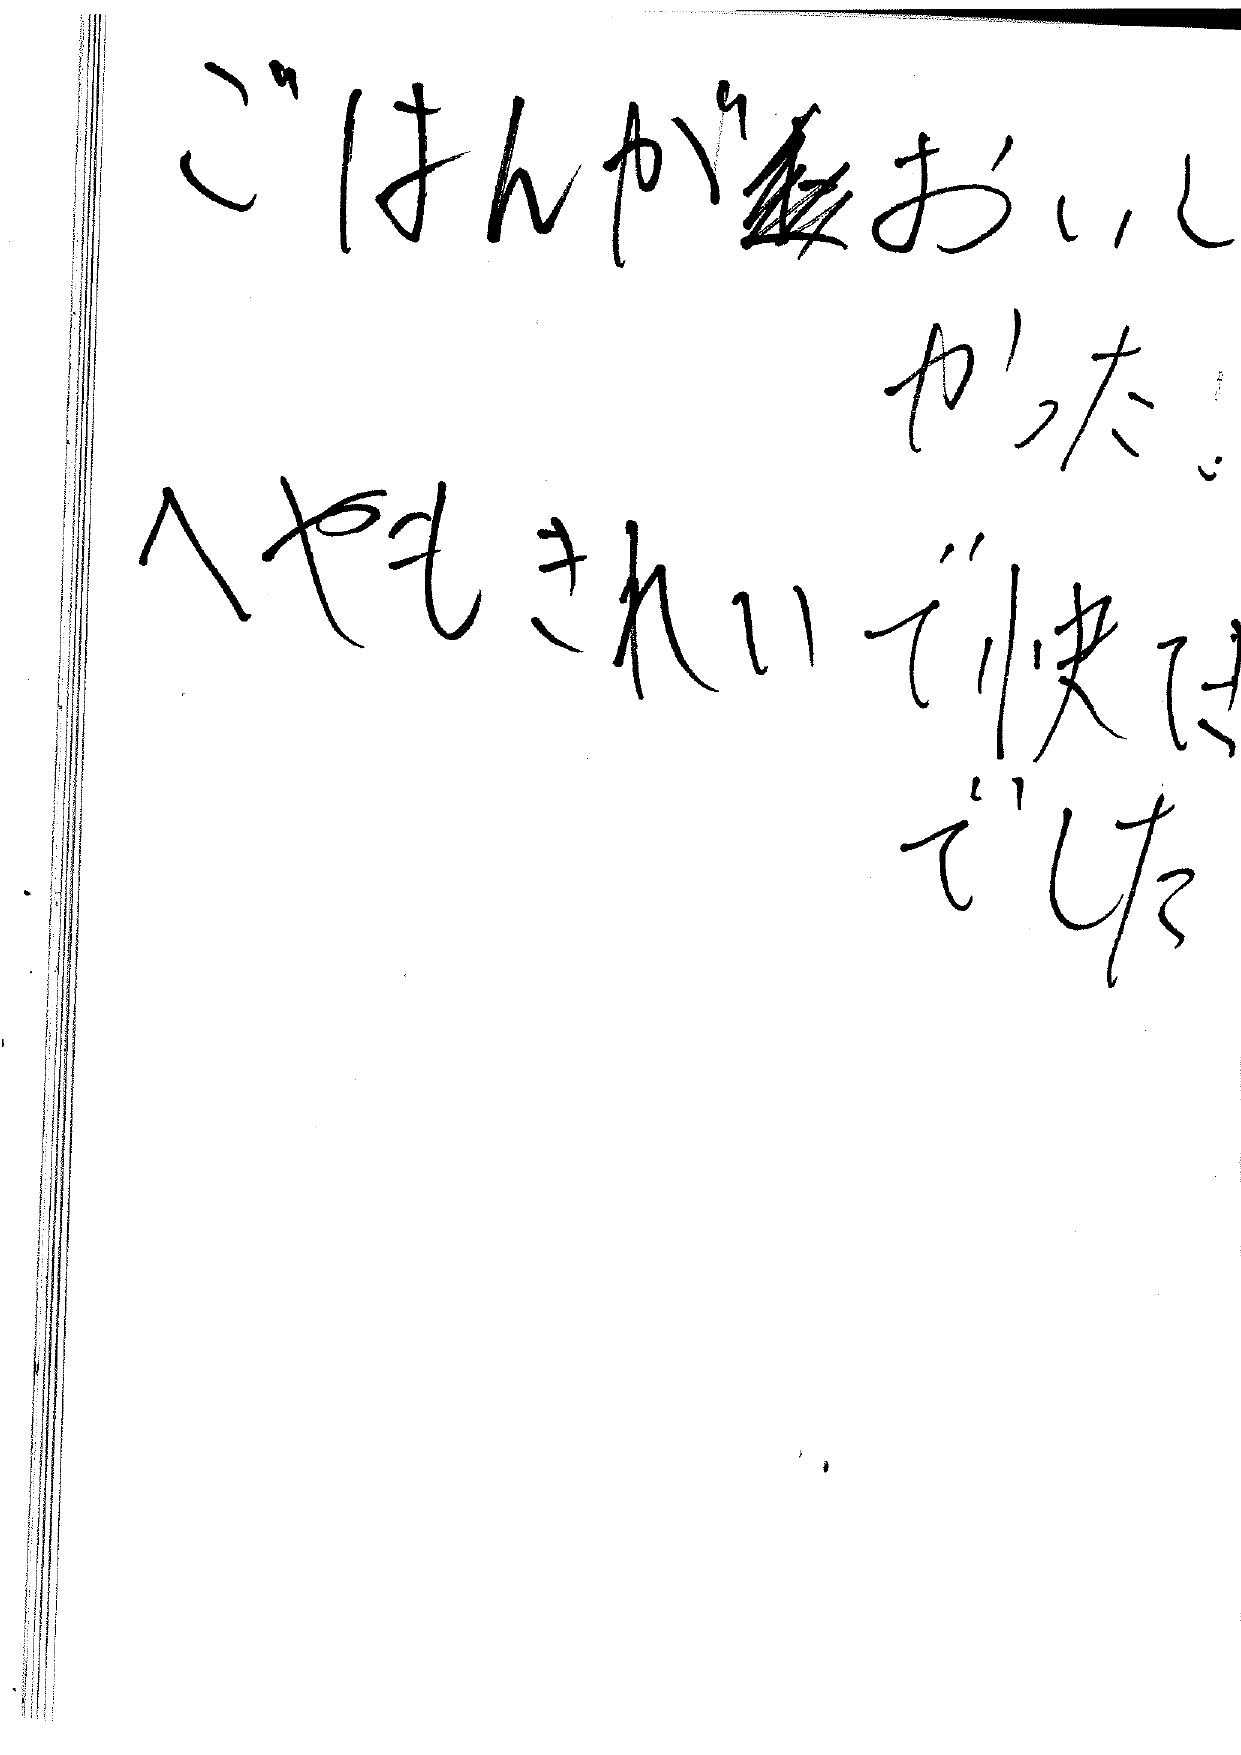 ごはんがおいし
かった!
へやもきれいで快てき
でした